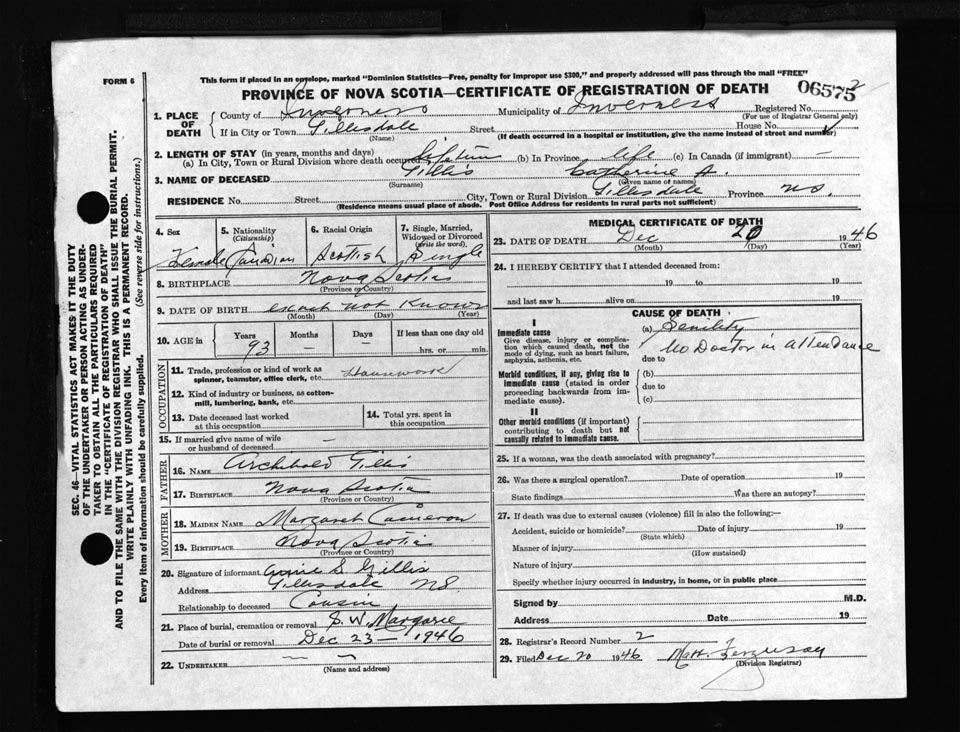 FORM 6
This form if placed in an envelope, marked "Dominion Statistics—Free, penalty for improper use $300," and properly addressed will pass through the mail "FREE"
PROVINCE OF NOVA SCOTIA—CERTIFICATE OF REGISTRATION OF DEATH
06575 2
1. PLACE OF DEATH
County of Inverness Municipality of Inverness Registered No.
(For use of Registrar General only)
If in City or Town Gillisdale Street House No.
(Name) (If death occurred in a hospital or institution, give the name instead of street and number)
2. LENGTH OF STAY (in years, months and days)
(a) In City, Town or Rural Division where death occurred lifetime (b) In Province life (c) In Canada (if immigrant) —
3. NAME OF DECEASED Gillis Catherine A.
(Surname) (Given name or names)
RESIDENCE No. Street City, Town or Rural Division Gillisdale Province NS.
(Residence means usual place of abode. Post Office Address for residents in rural parts not sufficient)
4. Sex Female
5. Nationality (Citizenship) Canadian
6. Racial Origin Scottish
7. Single, Married, Widowed or Divorced (write the word) Single
8. BIRTHPLACE Nova Scotia
(Province or Country)
9. DATE OF BIRTH exact not Known
(Month) (Day) (Year)
10. AGE in Years 93 Months — Days — If less than one day old
hrs. or min.
OCCUPATION
11. Trade, profession or kind of work as spinner, teamster, office clerk, etc. Housework
12. Kind of industry or business, as cotton-mill, lumbering, bank, etc.
13. Date deceased last worked at this occupation
14. Total yrs. spent in this occupation
15. If married give name of wife or husband of deceased —
FATHER
16. NAME Archibald Gillis
17. BIRTHPLACE Nova Scotia
(Province or Country)
MOTHER
18. MAIDEN NAME Margaret Cameron
19. BIRTHPLACE Nova Scotia
(Province or Country)
20. Signature of informant S. Gillis
Address Gillisdale NS
Relationship to deceased Cousin
21. Place of burial, cremation or removal S. W. Margaree
Date of burial or removal Dec 23 — 1946
22. UNDERTAKER — —
(Name and address)
MEDICAL CERTIFICATE OF DEATH
23. DATE OF DEATH Dec 20 1946
(Month) (Day) (Year)
24. I HEREBY CERTIFY that I attended deceased from:
19 to 19
and last saw h alive on 19
CAUSE OF DEATH
I
Immediate cause (a) Senility
Give disease, injury or complication which caused death, not the mode of dying, such as heart failure, asphyxia, asthenia, etc.
No Doctor in attendance
due to
Morbid conditions, if any, giving rise to immediate cause (stated in order proceeding backwards from immediate cause).
(b)
due to
(c)
II
Other morbid conditions (if important) contributing to death but not causally related to immediate cause.
25. If a woman, was the death associated with pregnancy?
26. Was there a surgical operation? Date of operation 19
State findings Was there an autopsy?
27. If death was due to external causes (violence) fill in also the following:—
Accident, suicide or homicide? Date of injury 19
(State which)
Manner of injury
(How sustained)
Nature of injury
Specify whether injury occurred in industry, in home, or in public place
Signed by M.D.
Address Date 19
28. Registrar's Record Number 2
29. Filed Dec 20 1946 Matt. Ferguson
(Division Registrar)
SEC. 46—VITAL STATISTICS ACT MAKES IT THE DUTY
OF THE UNDERTAKER OR PERSON ACTING AS UNDER-
TAKER TO OBTAIN ALL THE PARTICULARS REQUIRED
IN THE "CERTIFICATE OF REGISTRATION OF DEATH"
AND TO FILE THE SAME WITH THE DIVISION REGISTRAR WHO SHALL ISSUE THE BURIAL PERMIT.
WRITE PLAINLY WITH UNFADING INK. THIS IS A PERMANENT RECORD.
Every item of information should be carefully supplied. (See reverse side for instructions.)